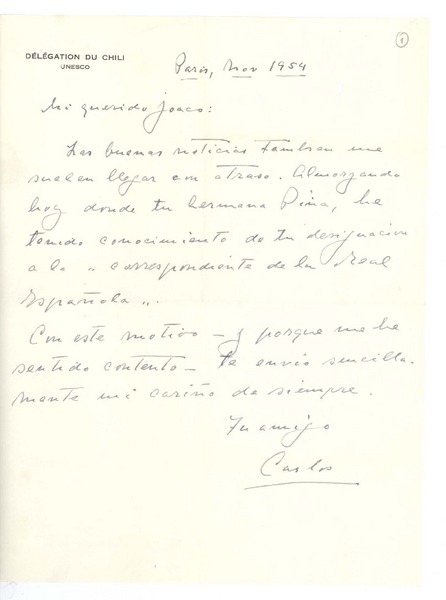 1
DÉLÉGATION DU CHILI
UNESCO
Paris, Nov 1954
Mi querido Joaco:
Las buenas noticias tambien me
suelen llegar con atraso. Almorzando
hoy donde tu hermana Pina, he
tenido conocimiento de tu designacion
a la "correspondiente de la Real
Española".
Con este motivo - y porque me he
sentido contento - te envío sencilla-
mente mi cariño de siempre.
Tu amigo
Carlos